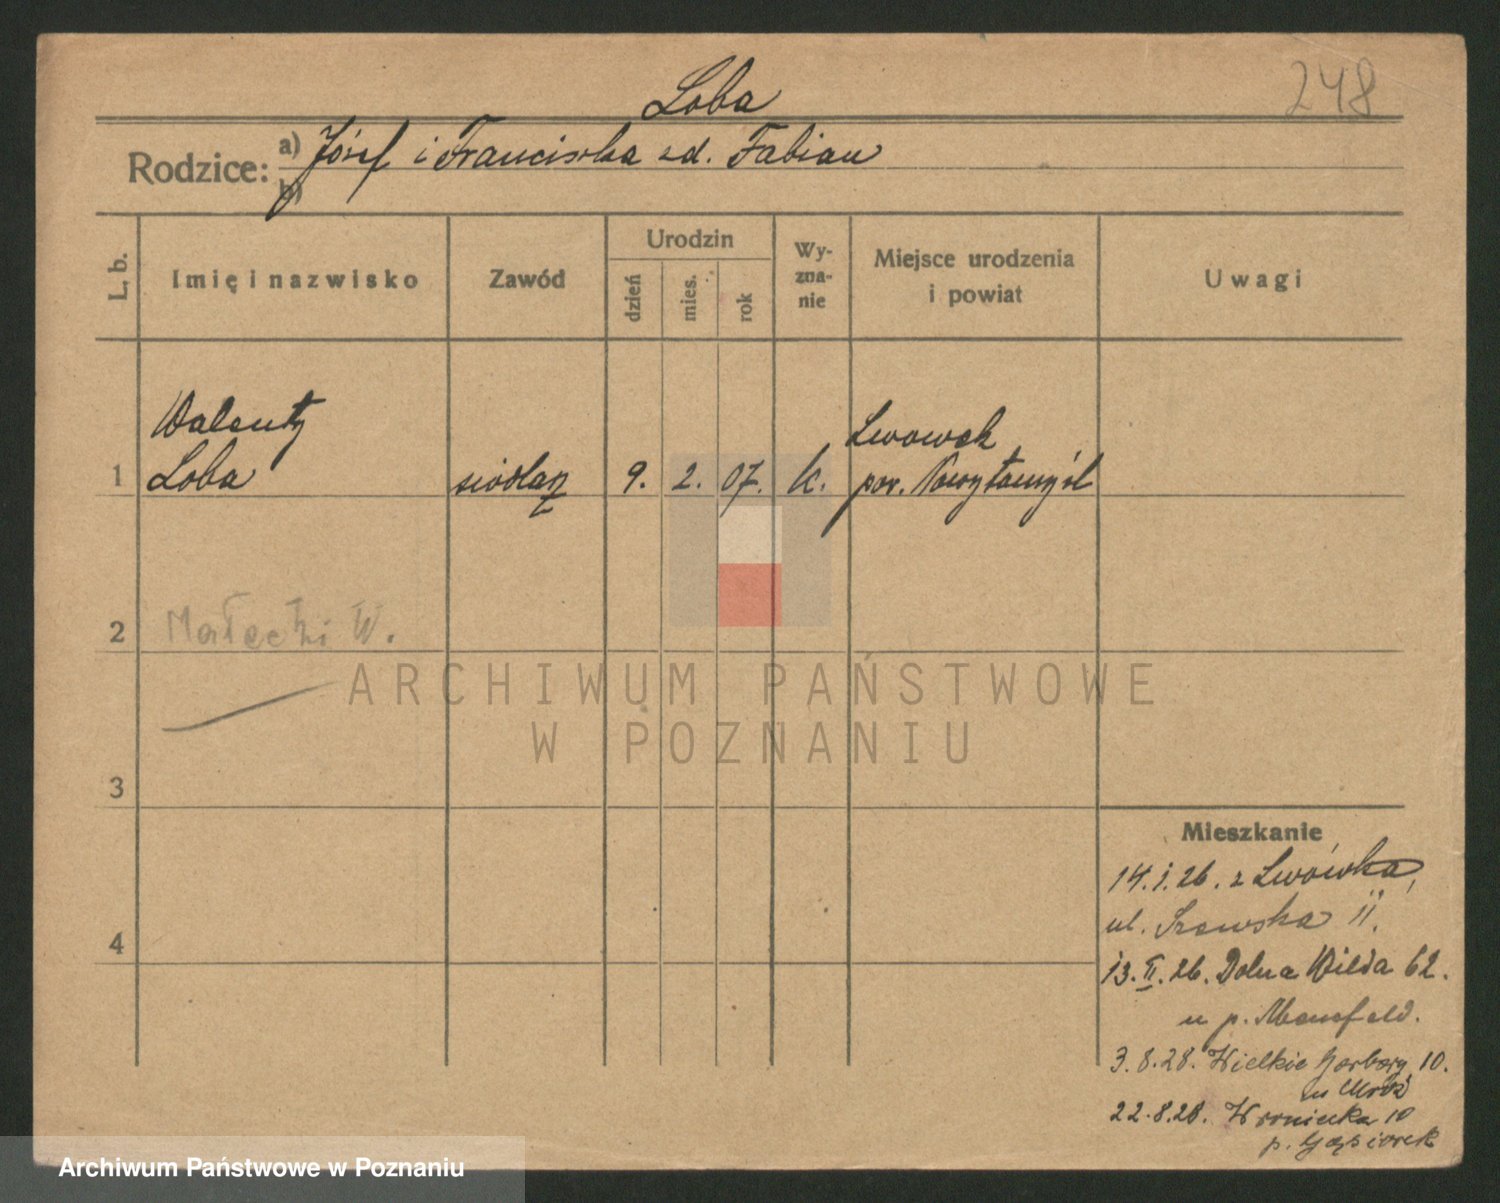 248
Loba
Rodzice: a) Józef i Franciszka zd. Fabian
b)
L. b.
Imię i nazwisko
Zawód
Urodzin
dzień
mies.
rok
Wy-
zna-
nie
Miejsce urodzenia
i powiat
Uwagi
Walenty
Lwowek
1 Loba siodlarz 9. 2. 07. k. pow. Nowytomyśl
2 Małecki W.
ARCHIWUM PAŃSTWOWE
W POZNANIU
3
4
Mieszkanie
14.1.26. z Lwówka,
ul. Szewska 11.
13.II.26. Dolna Wilda 62.
u p. Mansfeld.
3.8.28. Wielkie Garbary 10.
u Mróz
22.8.28. Wroniecka 10
p. Gąsiorek
Archiwum Państwowe w Poznaniu